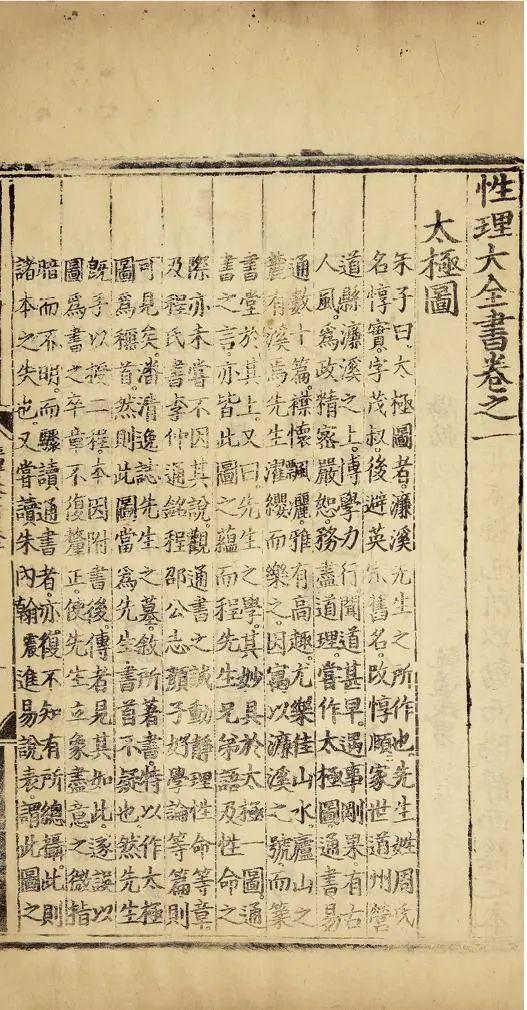 性理大全書卷之一
太極圖
朱子曰太極圖者濂溪先生之所作也先生姓周氏
名惇實字茂叔後避英宗舊名改惇頤家世道州營
道縣濂溪之上博學力行聞道甚早遇事剛果有古
人風爲政精密嚴恕務盡道理嘗作太極圖通書易
通數十篇襟懷飄灑雅有高趣尤樂佳山水廬山之
麓有溪焉先生濯纓而樂之因寓以濂溪之號而築
書堂於其上又曰先生之學其妙具於太極一圖通
書之言亦皆此圖之蘊而程先生兄弟語及性命之
際亦未嘗不因其說觀通書之誠動靜理性命等章
及程氏書李仲通銘程邵公志顏子好學論等篇則
可見矣潘清逸誌先生之墓敘所著書特以作太極
圖爲稱首然則此圖當爲先生書首不疑也然先生
既手以授二程本因附書後傳者見其如此遂誤以
圖爲書之卒章不復釐正使先生立象盡意之微指
暗而不明而驟讀通書者亦復不知有所總攝此則
諸本之失也又嘗讀朱內翰震進易說表謂此圖之